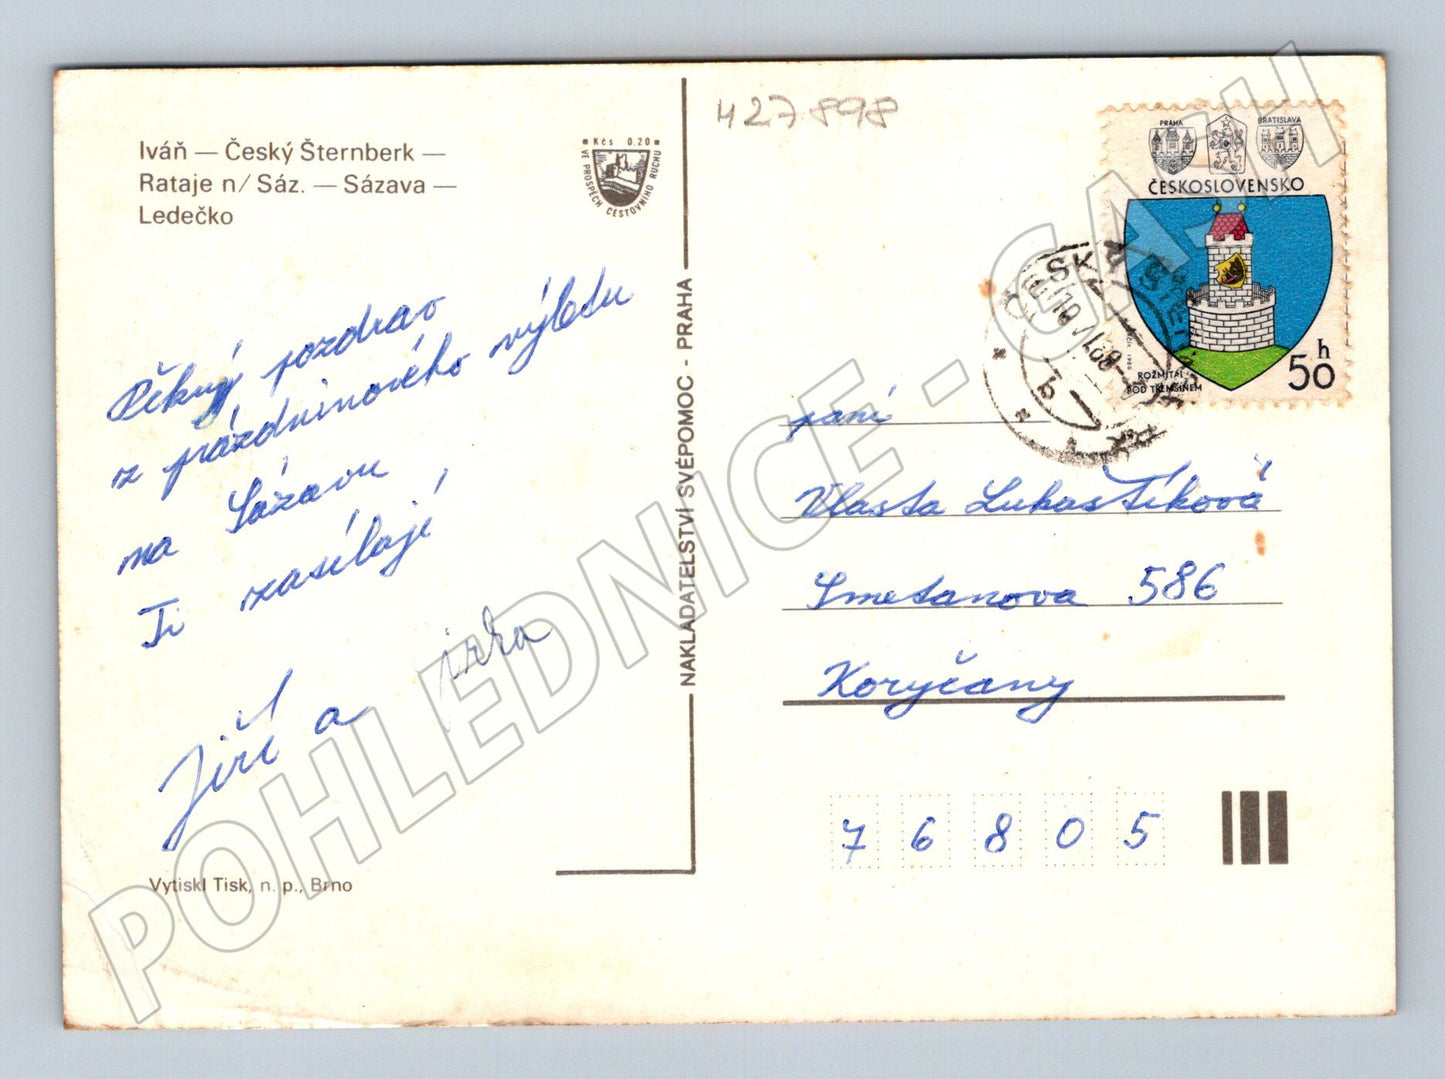 427898
Iváň — Český Šternberk —
Rataje n/ Sáz. — Sázava —
Ledečko
Kčs 0.20
VE PROSPĚCH CESTOVNÍHO RUCHU
Pěkný pozdrav
z prázdninového výletu
na Sázavu
Ti zasílají
Jiří a Jirka
Vytiskl Tisk, n. p., Brno
NAKLADATELSTVÍ SVÉPOMOC - PRAHA
PRAHA
BRATISLAVA
ČESKOSLOVENSKO
ROŽMITÁL
POD TŘEMŠÍNEM
50 h
paní
Vlasta Lukastíková
Smetanova 586
Koryčany
76805
POHLEDNICE - GASH